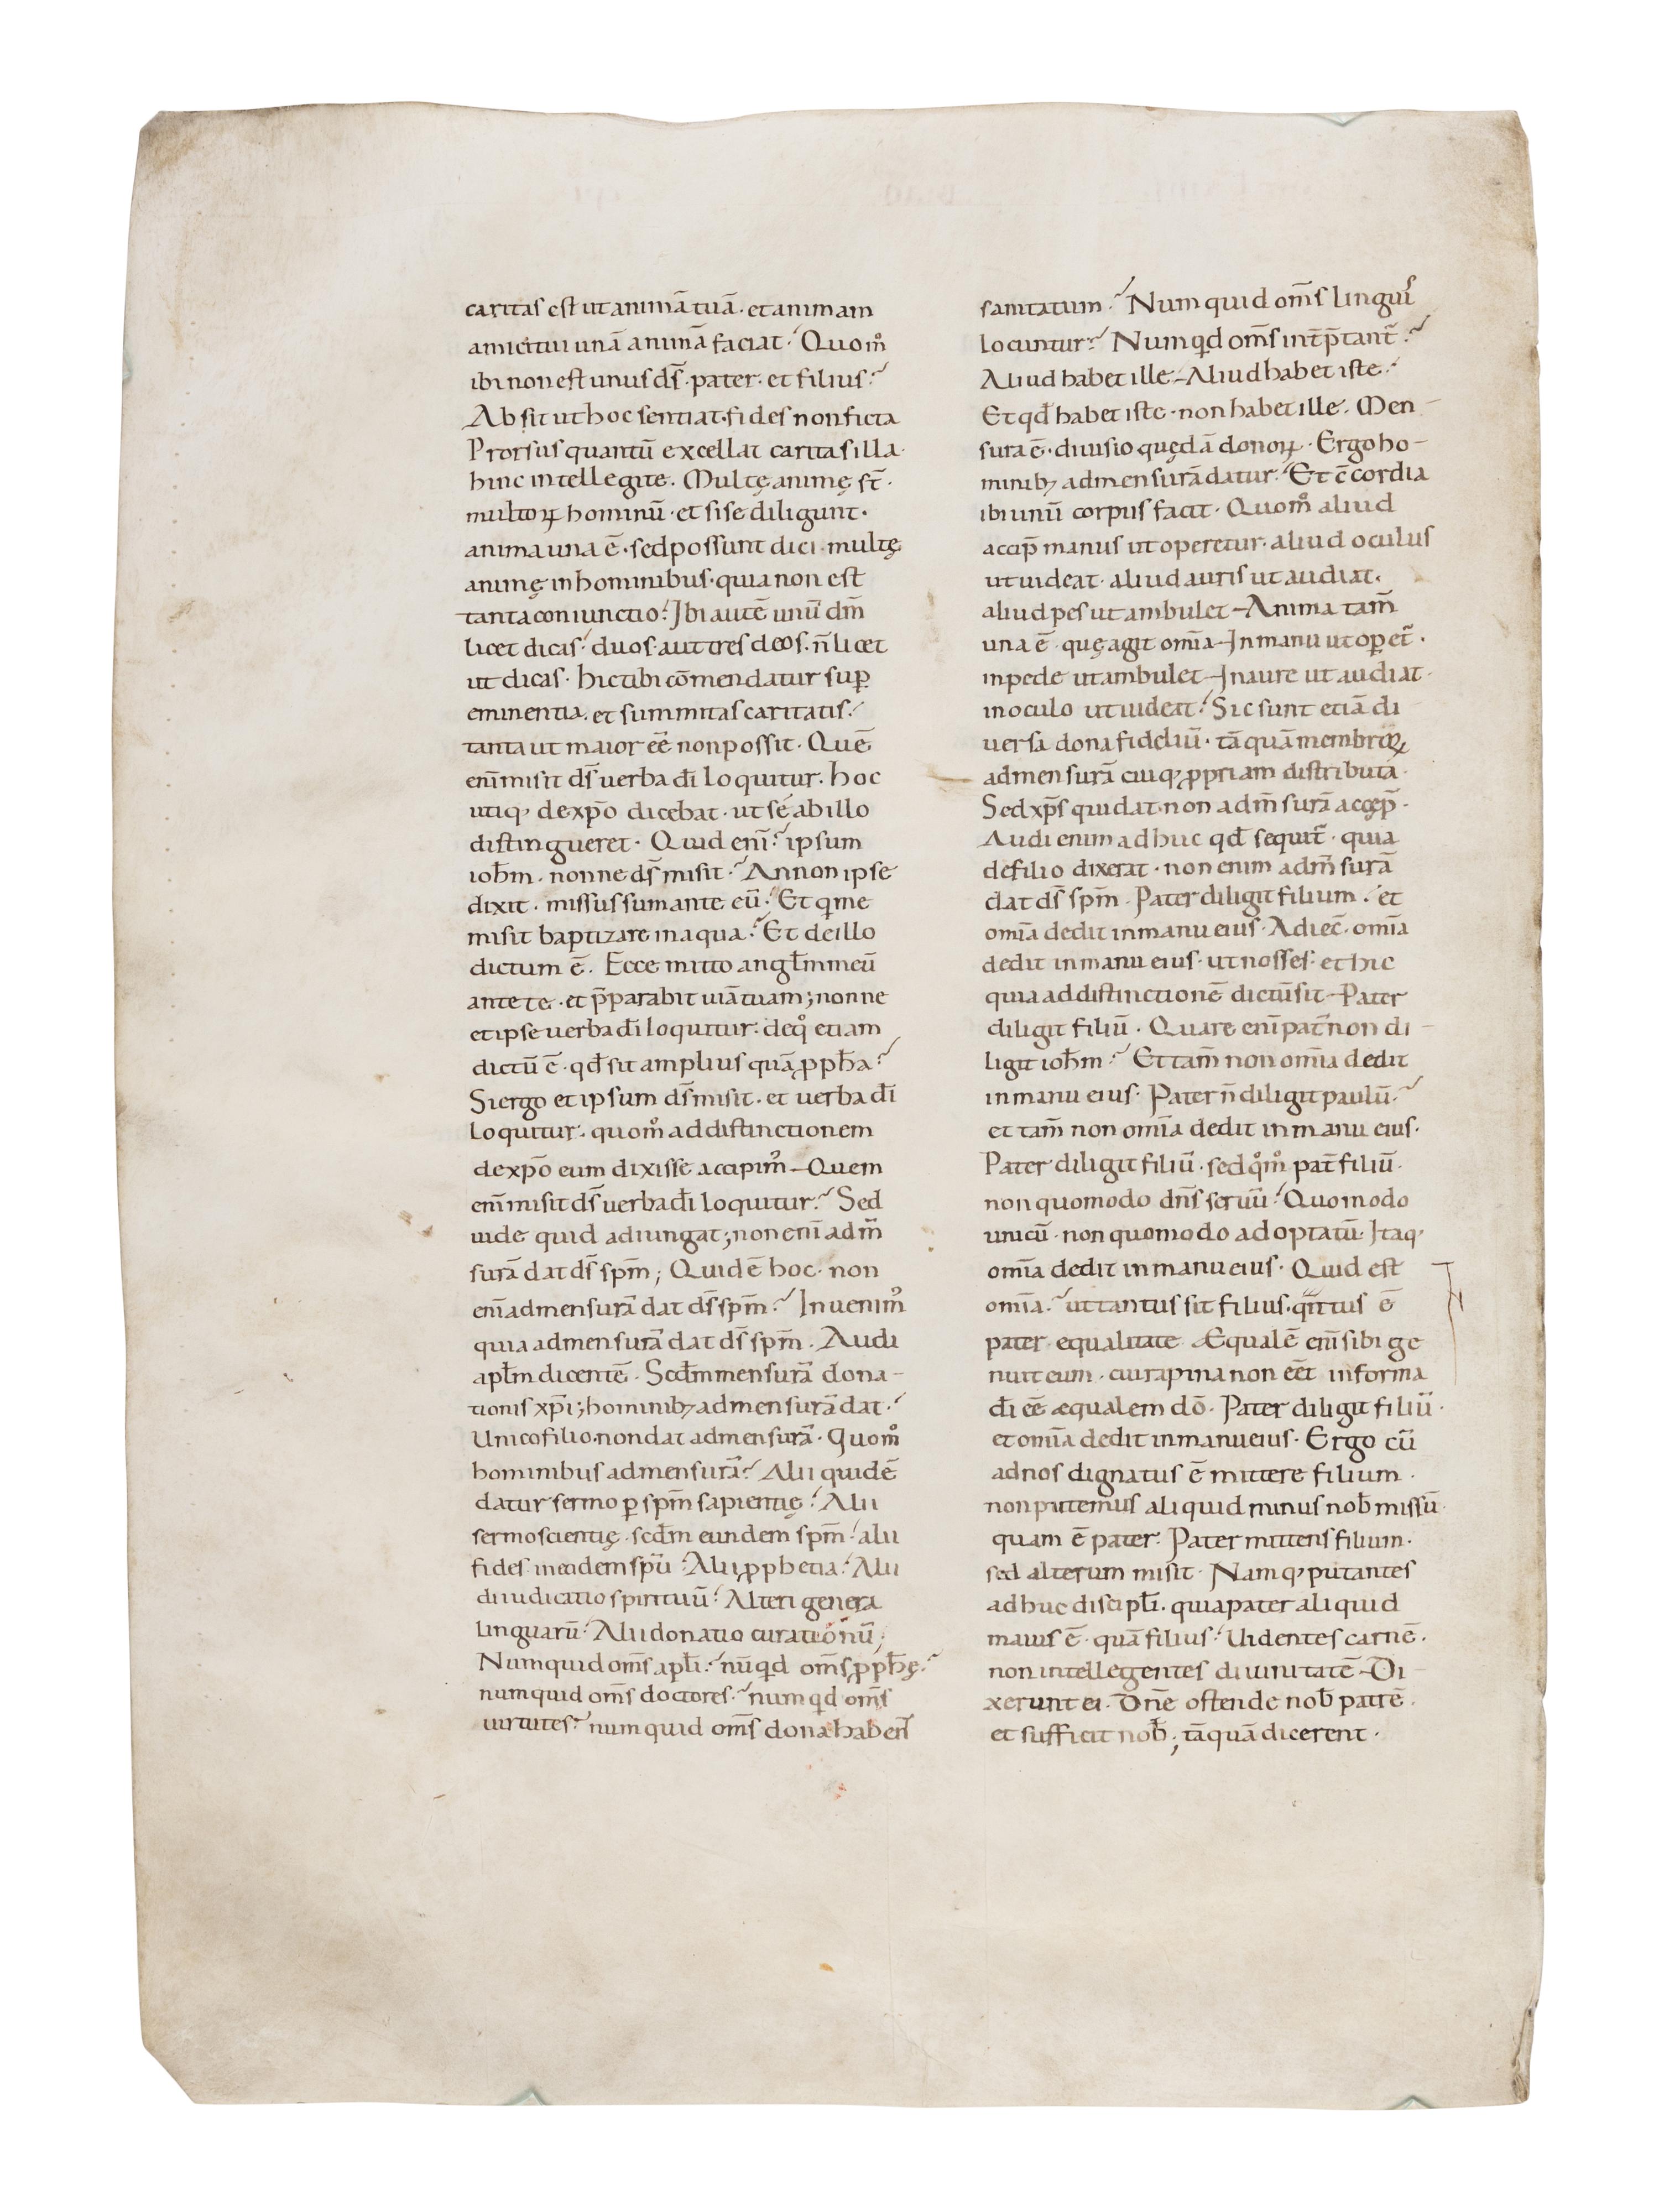 caritas est ut animā tuā · et animam
amici tui unā animā faciat · Quom̊
ibi non est unus d̄s · pater · et filius?
Absit ut hoc sentiat · fides non ficta
Prorsus quantū excellat caritas illa ·
hinc intellegite. Multę animę st̄ ·
multoꝝ hominū · et si se diligunt ·
anima una ē · sed possunt dici · multę
animę in hominibus · quia non est
tanta coniunctio · Ibi autē unū dm̄
licet dicas · duos · aut tres deos · n̄ licet
ut dicas · hic tibi cōmendatur suꝑ
eminentia · et summitas caritatis ·
tanta ut maior eē non possit · Quē
eni̅ misit d̄s verba dī loquitur · hoc
utiq; de xp̄o dicebat · ut sé ab illo
distingueret · Quid eni̅? ipsum
ioh̄m · nonne d̄s misit? An non ipse
dixit · missus sum ante eū? Et q̇ me
misit baptizare in aqua? Et de illo
dictum ē · Ecce mitto angl̄m meū
ante te · et p̄parabit uiā tuam; nonne
et ipse verba dī loquitur · de q̊ etiam
dictū ē · qđ sit amplius quā ꝓph̄a?
Si ergo et ipsum d̄s misit · et verba dī
loquitur · quom̊ ad distinctionem
de xp̄o eum dixisse accipim᾿ – Quem
eni̅ misit d̄s verba dī loquitur? Sed
uide quid adiungat; non eni̅ ad m̄
surā dat d̄s spm̄; Quid ē hoc · non
eni̅ ad mensurā dat d̄s spm̄? Inuenim᾿
quia ad mensurā dat d̄s spm̄ · Audi
apl̄m dicentē · Scđm mensurā dona-
tionis xp̄i; hominib; ad mensurā dat ·
Unico filio · non dat ad mensurā · Quom̊
hominibus ad mensurā? Alii quidē
datur sermo ꝑ spm̄ sapientię · Alii
sermo scientię · scđm eundem spm̄ · alii
fides in eodem spū · Alii ꝓphetia · Alii
diiudicatio spirituū · Alteri genera
linguarū · Alii donatio curationū;
Numquid om̄s apl̄i? nūqd om̄s ꝓph̄ę?
numquid om̄s doctores? numqd om̄s
uirtutes? numquid om̄s dona haben̄t
sanitatum? Numquid om̄s linguis
locuntur? Numqd om̄s int̄p̄tant̄?
Aliud habet ille – Aliud habet iste ·
Et qđ habet iste · non habet ille · Men-
sura ē · diuisio quędā donoꝝ · Ergo ho-
minib; ad mensurā datur · Et c̄cordia
ibi unū corpus facit · Quom̊ aliud
accip̄ manus ut operetur · aliud oculus
ut uideat · aliud auris ut audiat ·
aliud pes ut ambulet – Anima tam̄
una ē · quę agit omīa – In manu ut oꝑet̄ ·
in pede ut ambulet – In aure ut audiat ·
in oculo ut uideat · Sic sunt etiā di
uersa dona fideliū · tāquā membroꝝ
ad mensurā cuiq; ꝓpriam distributa ·
Sed xp̄s qui dat · non ad m̄surā accep̄ ·
Audi enim adhuc qđ sequit̄ · quia
de filio dixerat · non enim ad m̄surā
dat d̄s spm̄ · Pater diligit filium · et
omīa dedit in manu eius · Adiec̄ · omīa
dedit in manu eius · ut nosses · et hic
quia ad distinctionē dictū sit – Pater
diligit filiū · Quare eni̅ pat̄ non di-
ligit ioh̄m? Et tam̄ non omīa dedit
in manu eius · Pater n̄ diligit paulū?
et tam̄ non omīa dedit in manu eius ·
Pater diligit filiū · sed q̊m̊ pat̄ filiū ·
non quomodo dn̄s seruū · Quomodo
unicū · non quomodo adoptatū · Itaq;
omīa dedit in manu eius · Quid est
omīa? ut tantus sit filius · q̄ntus ē
pater · equalitate · Æqualē eni̅ sibi ge
nuit eum · cui rapina non eēt in forma
dī eē æqualem dō · Pater diligit filiū ·
et omīa dedit in manu eius · Ergo cū
ad nos dignatus ē mittere filium ·
non putemus aliquid minus nob̄ missū
quam ē pater · Pater mittens filium ·
sed alterum misit · Namq; putantes
adhuc discipl̄i · quia pater aliquid
maius ē · quā filius · Uidentes carnē ·
non intellegentes diuinitatē – Di-
xerunt ei · Dn̄e ostende nob̄ patrē ·
et sufficit nob̄; tāquā dicerent ·